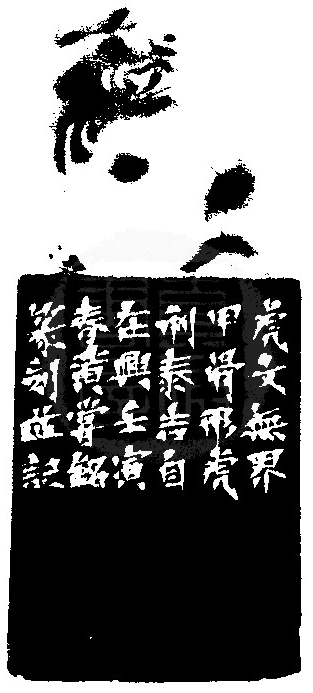 虎文無界
甲骨形虎
利泰吉自
在興壬寅
春黃嘗銘
篆刻並記